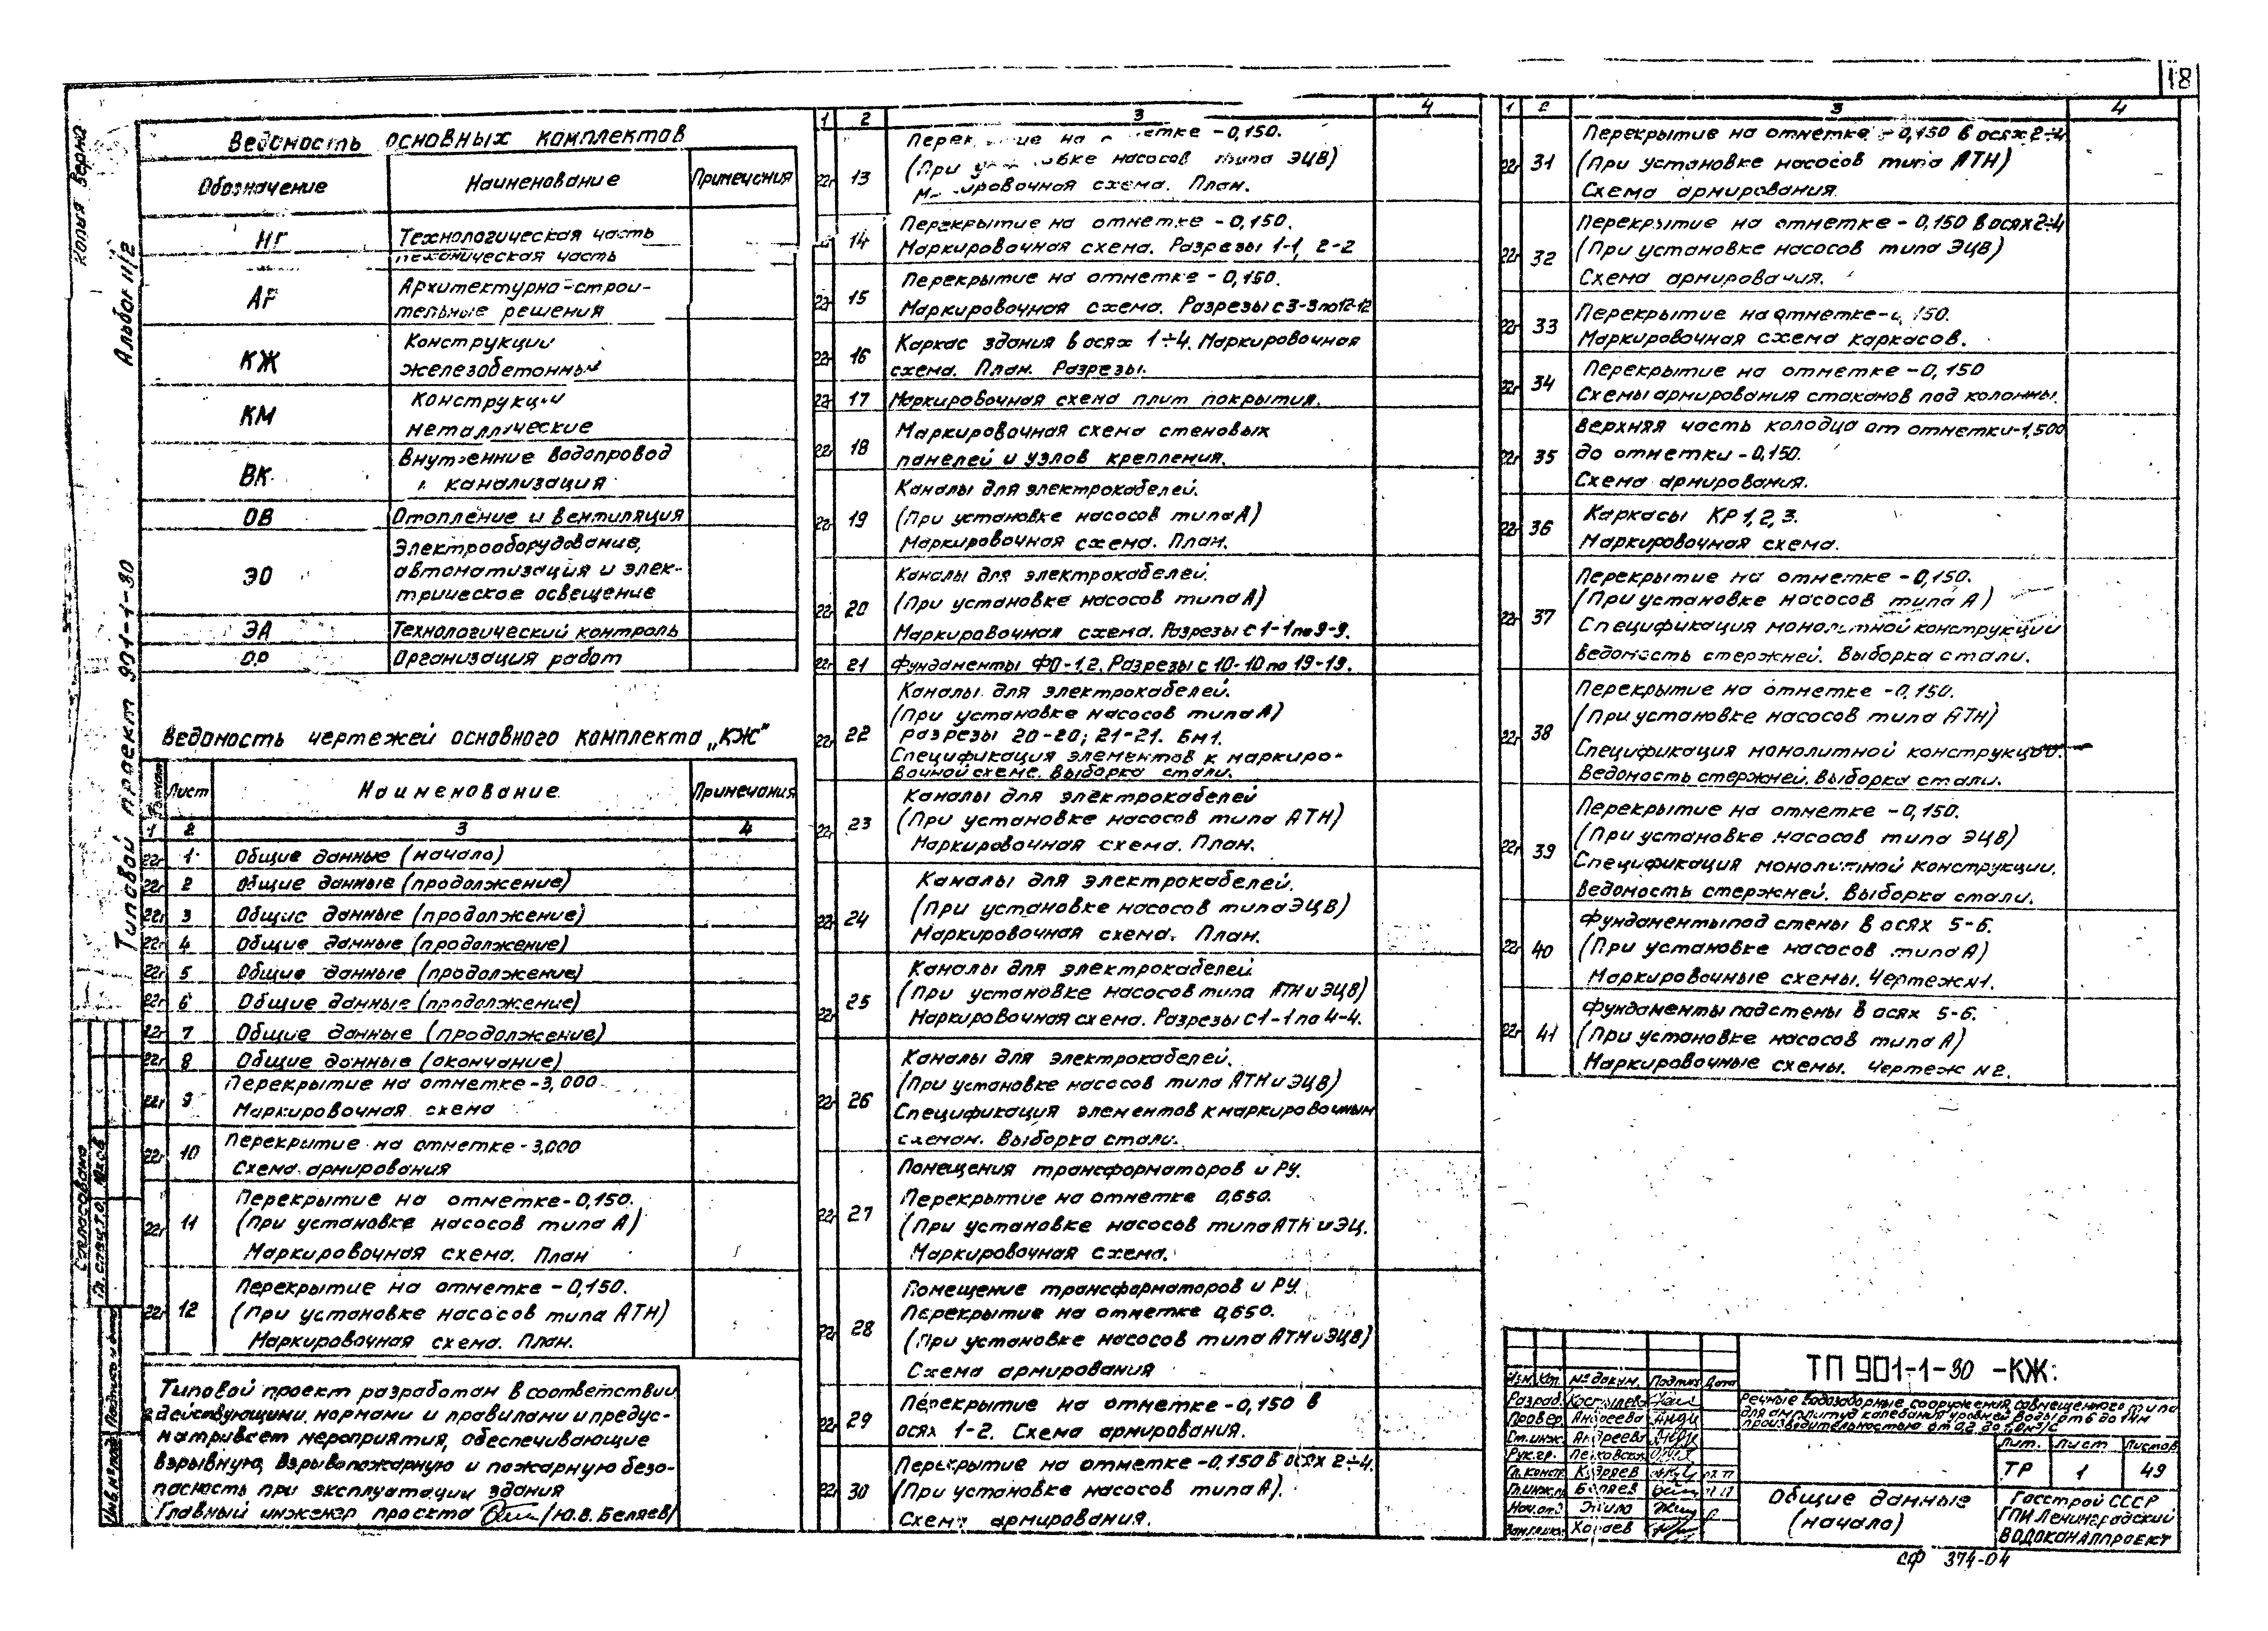 18
Копия верна
Альбом II/2
Типовой проект 901-1-30
Ведомость основных комплектов
Обозначение Наименование Примечания
НГ Технологическая часть
механическая часть
АР Архитектурно-строи-
тельные решения
КЖ Конструкции
железобетонные
КМ Конструкции
металлические
ВК Внутренние водопровод
и канализация
ОВ Отопление и вентиляция
ЭО Электрооборудование,
автоматизация и элек-
трическое освещение
ЭА Технологический контроль
ОР Организация работ
Ведомость чертежей основного комплекта „КЖ"
Лист Наименование Примечания
1 2 3 4
22г 1 Общие данные (начало)
22г 2 Общие данные (продолжение)
22г 3 Общие данные (продолжение)
22г 4 Общие данные (продолжение)
22г 5 Общие данные (продолжение)
22г 6 Общие данные (продолжение)
22г 7 Общие данные (продолжение)
22г 8 Общие данные (окончание)
Перекрытие на отметке -3,000
22г 9 Маркировочная схема
Перекрытие на отметке -3,000
22г 10 Схема армирования
Перекрытие на отметке -0,150.
22г 11 (При установке насосов типа А)
Маркировочная схема. План
Перекрытие на отметке -0,150.
22г 12 (При установке насосов типа АТН)
Маркировочная схема. План.
Типовой проект разработан в соответствии
с действующими нормами и правилами и предус-
матривает мероприятия, обеспечивающие
взрывную, взрывопожарную и пожарную безо-
пасность при эксплуатации здания
Главный инженер проекта /Ю.В. Беляев/
1 2 3 4
Перекрытие на отметке -0,150.
22г 13 (При установке насосов типа ЭЦВ)
Маркировочная схема. План.
Перекрытие на отметке -0,150.
14 Маркировочная схема. Разрезы 1-1, 2-2
Перекрытие на отметке -0,150.
22г 15 Маркировочная схема. Разрезы с 3-3 по 12-12
Каркас здания в осях 1÷4. Маркировочная
22г 16 схема. План. Разрезы.
22г 17 Маркировочная схема плит покрытия.
Маркировочная схема стеновых
22г 18 панелей и узлов крепления.
Каналы для электрокабелей.
22г 19 (При установке насосов типа А)
Маркировочная схема. План.
Каналы для электрокабелей.
22г 20 (При установке насосов типа А)
Маркировочная схема. Разрезы с 1-1 по 9-9.
22г 21 Фундаменты ФО-1,2. Разрезы с 10-10 по 19-19.
Каналы для электрокабелей.
(При установке насосов типа А)
22г 22 разрезы 20-20; 21-21. БМ1.
Спецификация элементов к маркиро-
вочной схеме. Выборка стали.
Каналы для электрокабелей
22г 23 (При установке насосов типа АТН)
Маркировочная схема. План.
Каналы для электрокабелей.
22г 24 (При установке насосов типа ЭЦВ)
Маркировочная схема. План.
Каналы для электрокабелей
22г 25 (При установке насосов типа АТН и ЭЦВ)
Маркировочная схема. Разрезы с 1-1 по 4-4.
Каналы для электрокабелей.
(При установке насосов типа АТН и ЭЦВ)
22г 26 Спецификация элементов к маркировочным
схемам. Выборка стали.
Помещения трансформаторов и РУ.
Перекрытие на отметке 0,650.
22г 27 (При установке насосов типа АТН и ЭЦ.
Маркировочная схема.
Помещение трансформаторов и РУ.
Перекрытие на отметке 0,650.
22г 28 (При установке насосов типа АТН и ЭЦВ)
Схема армирования
Перекрытие на отметке -0,150 в
22г 29 осях 1-2. Схема армирования.
Перекрытие на отметке -0,150 в осях 2÷4.
22г 30 (При установке насосов типа А).
Схема армирования.
1 2 3 4
Перекрытие на отметке -0,150 в осях 2÷4
22г 31 (При установке насосов типа АТН)
Схема армирования.
Перекрытие на отметке -0,150 в осях 2÷4
22г 32 (При установке насосов типа ЭЦВ)
Схема армирования.
Перекрытие на отметке -0,150.
22г 33 Маркировочная схема каркасов.
Перекрытие на отметке -0,150
22г 34 Схемы армирования стаканов под колонны.
Верхняя часть колодца от отметки -1,500
22г 35 до отметки -0,150.
Схема армирования.
Каркасы КР 1, 2, 3.
22г 36 Маркировочная схема.
Перекрытие на отметке -0,150.
(При установке насосов типа А)
22г 37 Спецификация монолитной конструкции
Ведомость стержней. Выборка стали.
Перекрытие на отметке -0,150.
(При установке насосов типа АТН)
22г 38 Спецификация монолитной конструкции.
Ведомость стержней. Выборка стали.
Перекрытие на отметке -0,150.
(При установке насосов типа ЭЦВ)
22г 39 Спецификация монолитной конструкции.
Ведомость стержней. Выборка стали.
Фундаменты под стены в осях 5-6.
22г 40 (При установке насосов типа А)
Маркировочные схемы. Чертеж №1.
Фундаменты под стены в осях 5-6.
22г 41 (При установке насосов типа А)
Маркировочные схемы. Чертеж №2.
Согласовано
Гл. спец. Т.О.
Инв. № подл. Подпись и дата
Изм. Кол. № докум. Подпись Дата
Разраб. Костылева
Провер. Андреева
Ст. инж. Андреева
Рук. гр.
Гл. констр. Кудряев
Гл. инж. п. Беляев
Нач. от.
ТП 901-1-30 -КЖ:
Речные водозаборные сооружения совмещенного типа
для амплитуд колебания уровней воды от 6 до 14м
производительностью от 0,2 до 1,0 м³/с
Лит. Лист Листов
ТР 1 49
Общие данные
(начало)
Госстрой СССР
ГПИ Ленинградский
ВОДОКАНАЛПРОЕКТ
СФ 374-04